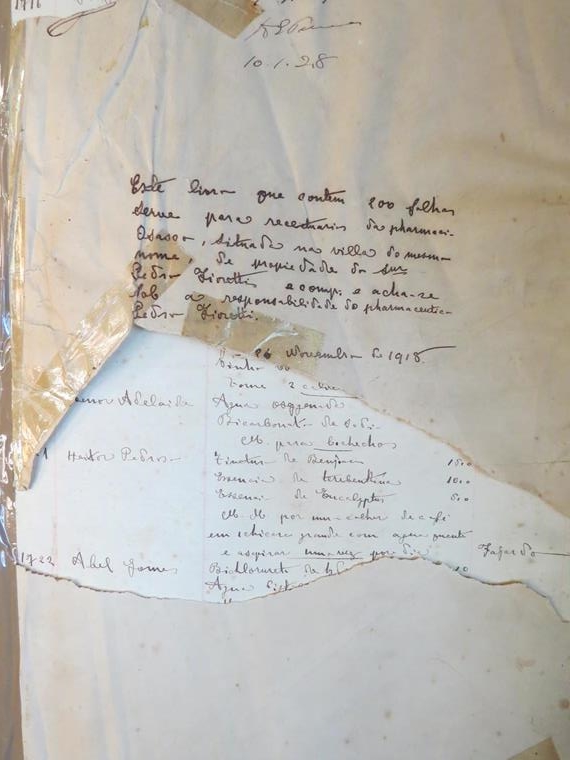 1918
10.1.28
Este livro que contem 200 folhas
serve para receituario da pharmacia
Osasco, situada na villa do mesmo
nome de propiedade do snr
Pedro Fioretti e comp. e acha-se
sob a responsabilidade do pharmaceutico
Pedro Fioretti.
26 Novembro de 1918.
Vinho
Tome 2
Adelaide Agua oxygenada
Bicarbonato de Sodio
M. para bochechos
Heitor Pedroso Tinctura de Benjoim
Essencia de terebentina 10
Essencia de Eucalyptus
M. M. por uma colher de café
em chicara grande com agua quente
e aspirar uma vez por dia Fajardo
1722 Abel Gomes Bichlorureto de
Agua